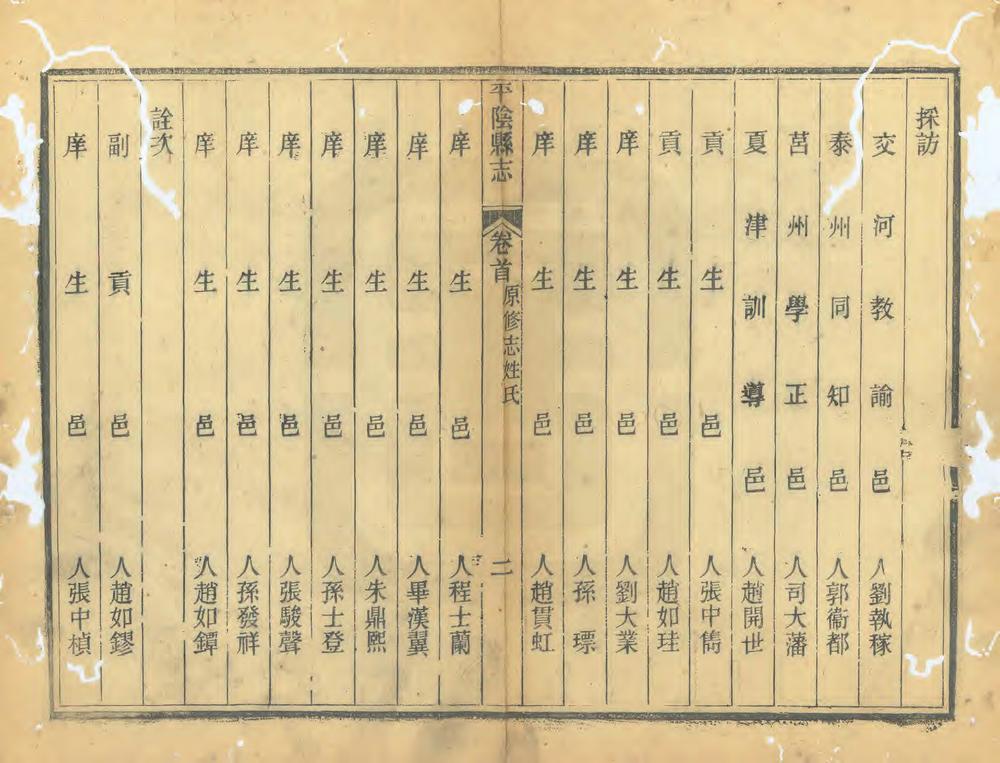 採訪
交河教諭邑人劉執稼
泰州同知邑人郭衞都
莒州學正邑人司大藩
夏津訓導邑人趙開世
貢生邑人張中雋
貢生邑人趙如珪
庠生邑人劉大業
庠生邑人孫瑮
庠生邑人趙貫虹
平陰縣志 卷首 原修志姓氏 二
庠生邑人程士蘭
庠生邑人畢漢翼
庠生邑人朱鼎熙
庠生邑人孫士登
庠生邑人張駿聲
庠生邑人孫發祥
庠生邑人趙如鐔
詮次
副貢邑人趙如鏐
庠生邑人張中楨